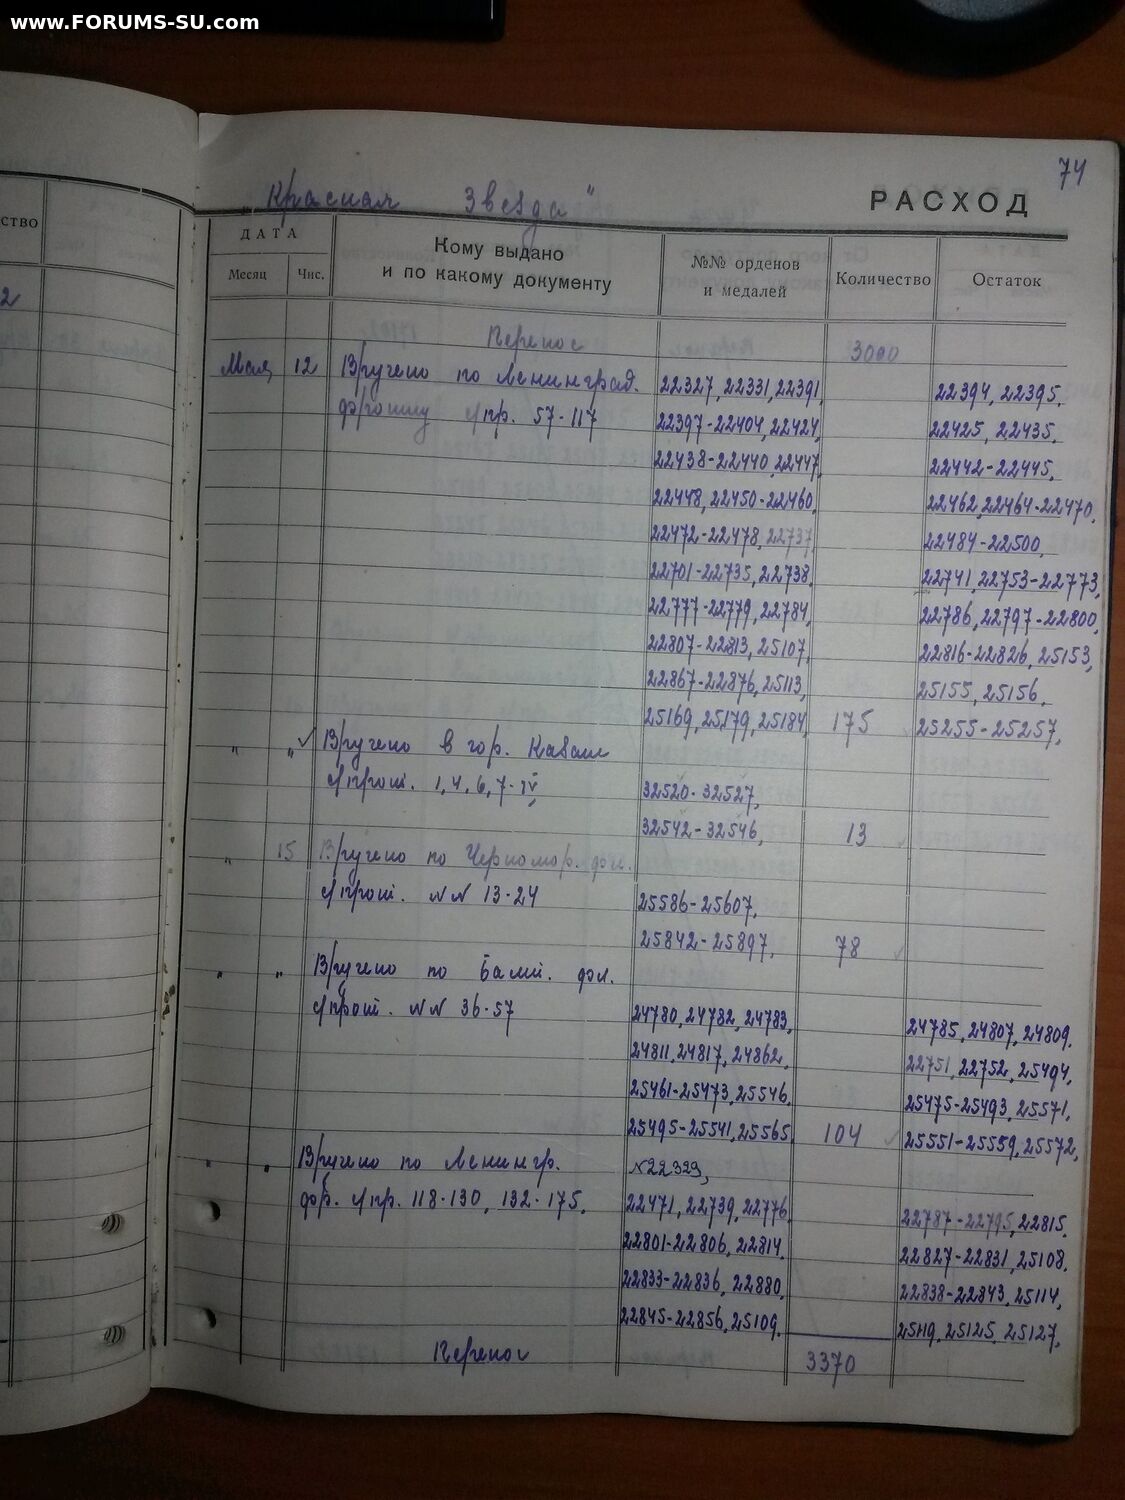 www.FORUMS-SU.com
74
„Красная Звезда"
РАСХОД
ство
2
ДАТА
Месяц Чис.
Кому выдано
и по какому документу
№№ орденов
и медалей
Количество
Остаток
Перенос 3000
Мая 12 Вручено по Ленинград. 22327, 22331, 22391, 22394, 22395,
фронту /пр. 57-117 22397-22404, 22424, 22425, 22435,
22438-22440, 22447, 22442-22445,
22448, 22450-22460, 22462, 22464-22470,
22472-22478, 22737, 22484-22500,
22701-22735, 22738, 22741, 22753-22773,
22777-22779, 22784, 22786, 22797-22800,
22807-22813, 25107, 22816-22826, 25153,
22867-22876, 25113, 25155, 25156,
25169, 25179, 25184, 175 25255-25257,
" " Вручено в гор.
1, 4, 6, 7-IV 32520-32527,
32542-32546, 13
" 15 Вручено по Черномор. фл.
/прот. NN 13-24 25586-25607,
25842-25897, 78
" " Вручено по Балт. фл.
/прот. NN 36-57 24780, 24782, 24783, 24785, 24807, 24809,
24811, 24817, 24862, 22751, 22752, 25494,
25461-25473, 25546, 25475-25493, 25571,
25495-25541, 25565, 104 25551-25559, 25572,
" " Вручено по Ленингр. N22323,
фр. /пр. 118-130, 132-175, 22471, 22739, 22776, 22787-22795, 22815,
22801-22806, 22814, 22827-22831, 25108,
22833-22836, 22880, 22838-22843, 25114,
22845-22856, 25109, 25119, 25125, 25127,
Перенос 3370